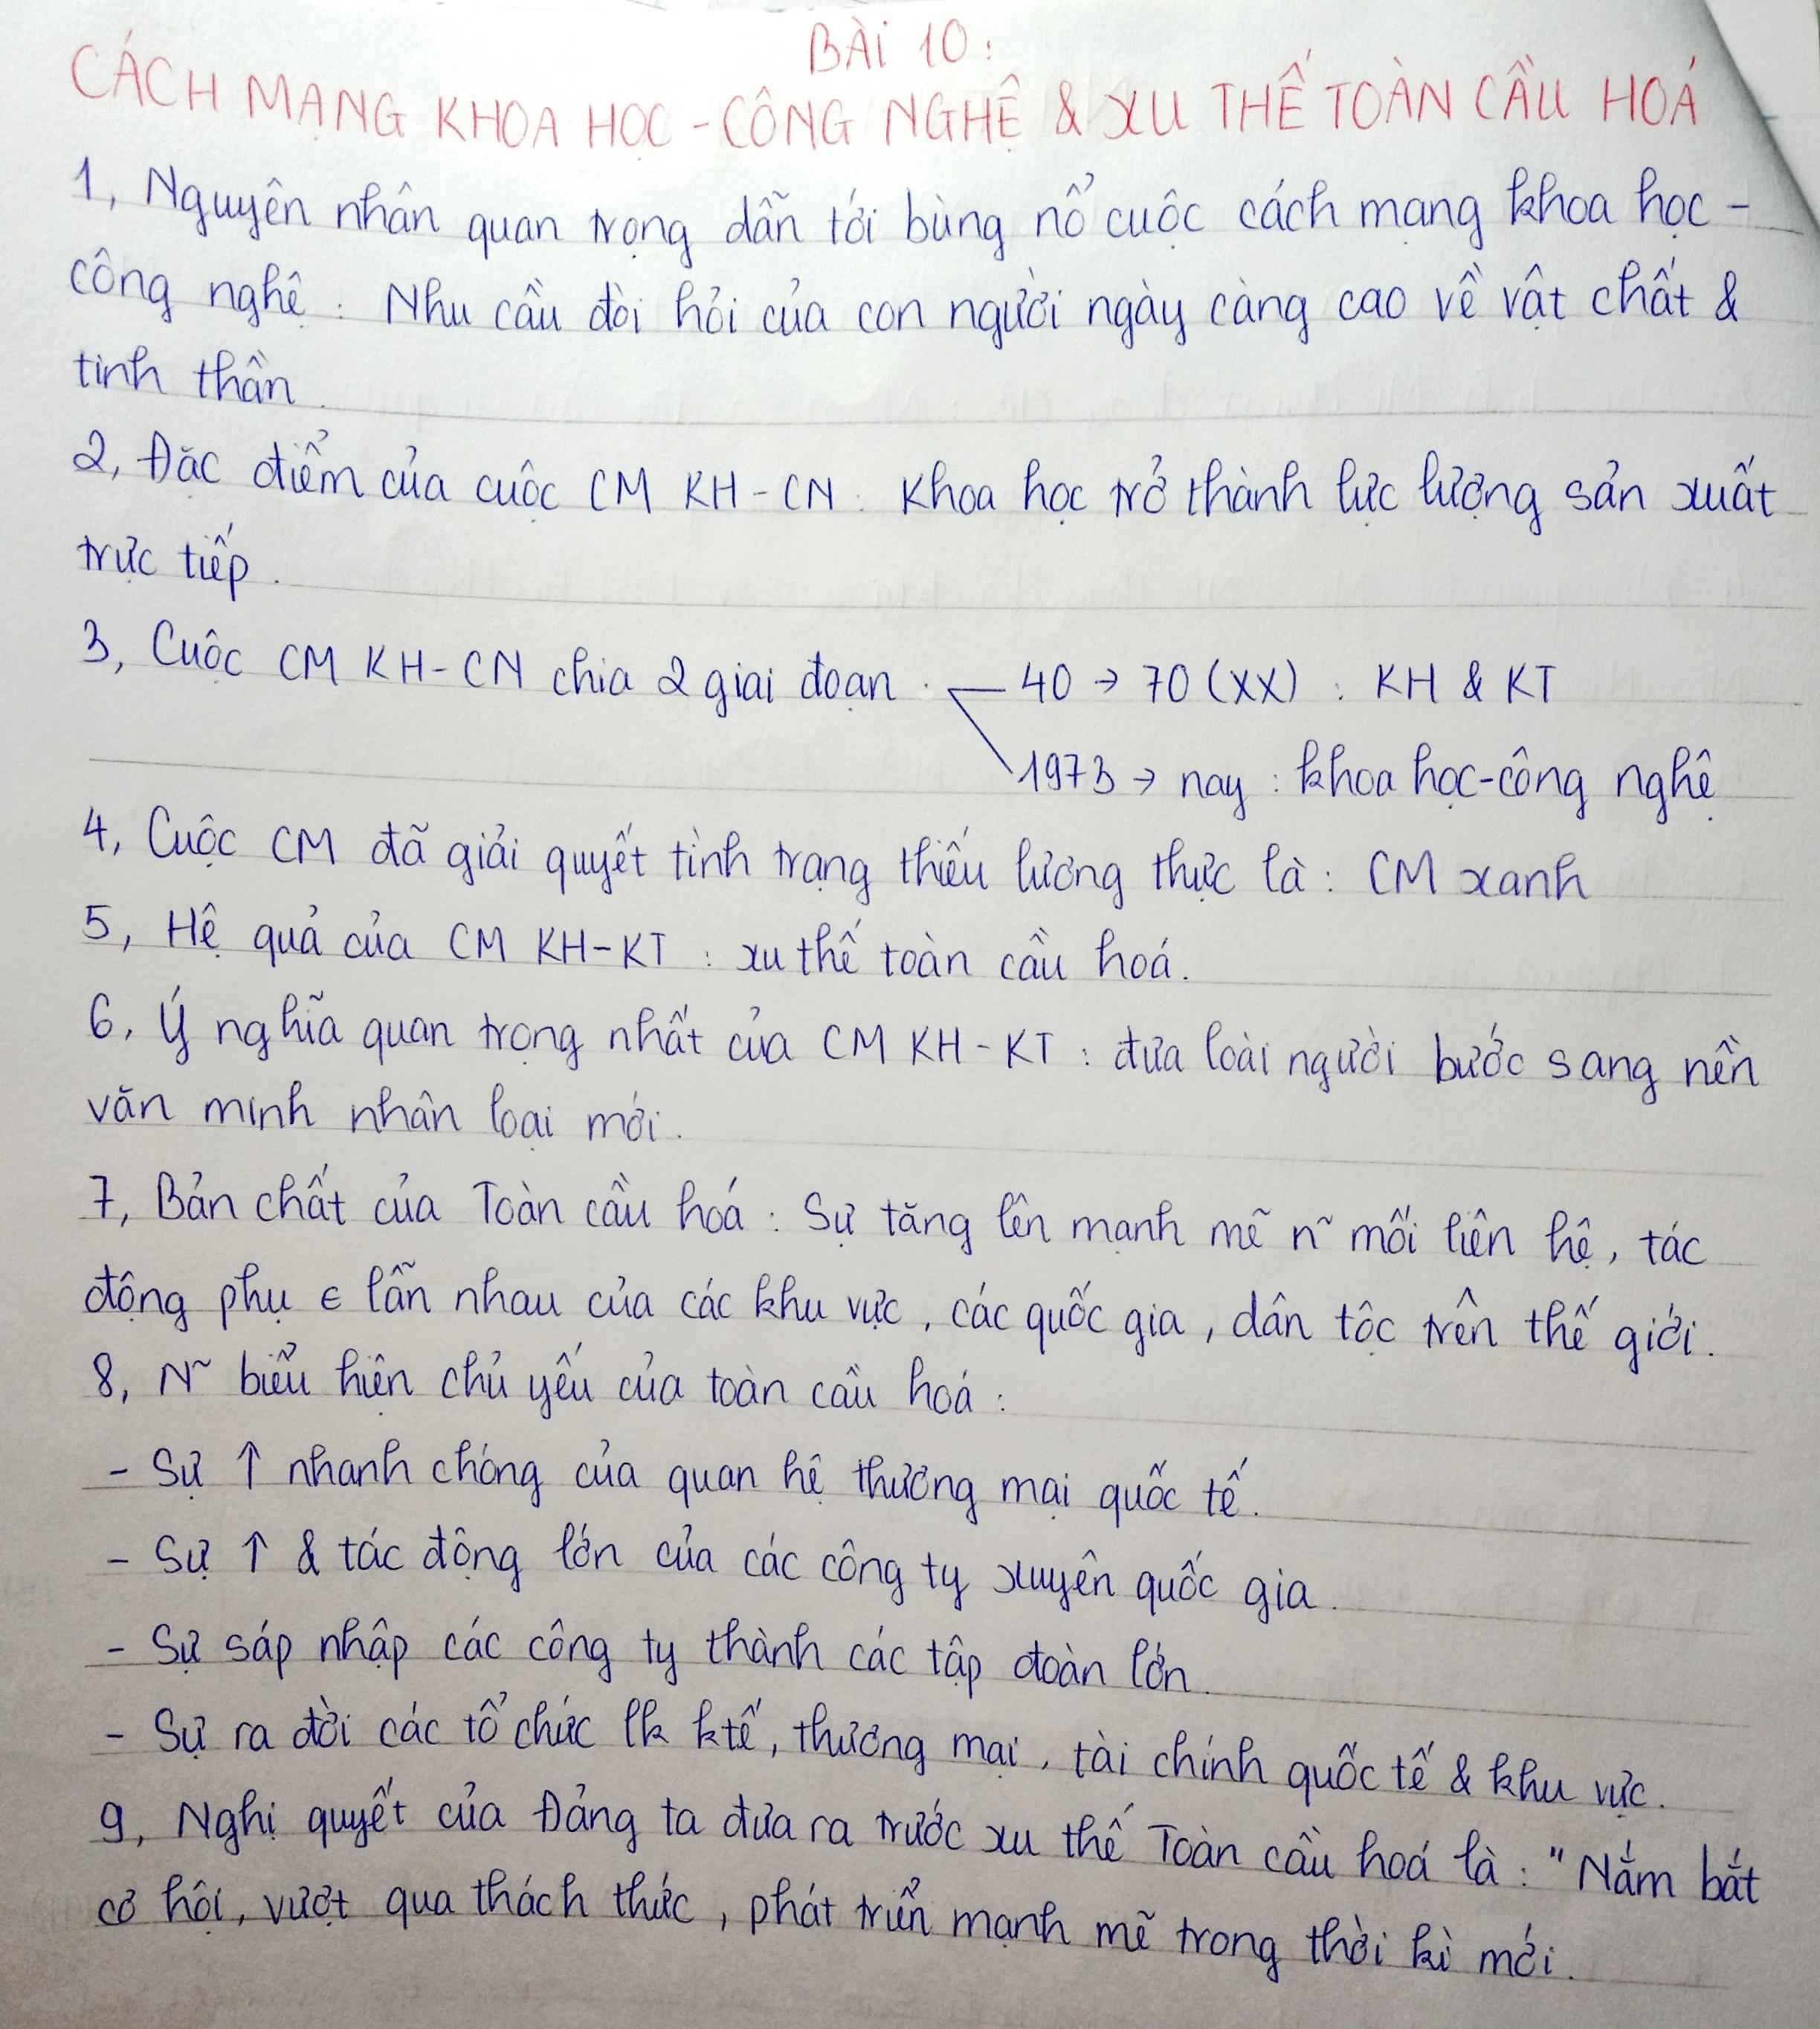 BÀI 10:
CÁCH MẠNG KHOA HỌC - CÔNG NGHỆ & XU THẾ TOÀN CẦU HOÁ
1, Nguyên nhân quan trọng dẫn tới bùng nổ cuộc cách mạng khoa học -
công nghệ: Nhu cầu đòi hỏi của con người ngày càng cao về vật chất &
tinh thần.
2, Đặc điểm của cuộc CM KH-CN: Khoa học trở thành lực lượng sản xuất
trực tiếp.
3, Cuộc CM KH-CN chia 2 giai đoạn: 40 → 70 (XX): KH & KT
1973 → nay: khoa học-công nghệ
4, Cuộc CM đã giải quyết tình trạng thiếu lương thực là: CM xanh
5, Hệ quả của CM KH-KT: xu thế toàn cầu hoá.
6, Ý nghĩa quan trọng nhất của CM KH-KT: đưa loài người bước sang nền
văn minh nhân loại mới.
7, Bản chất của Toàn cầu hoá: Sự tăng lên mạnh mẽ n~ mối liên hệ, tác
động phụ ∈ lẫn nhau của các khu vực, các quốc gia, dân tộc trên thế giới.
8, N~ biểu hiện chủ yếu của toàn cầu hoá:
- Sự ↑ nhanh chóng của quan hệ thương mại quốc tế.
- Sự ↑ & tác động lớn của các công ty xuyên quốc gia.
- Sự sáp nhập các công ty thành các tập đoàn lớn.
- Sự ra đời các tổ chức lk ktế, thương mại, tài chính quốc tế & khu vực.
9, Nghị quyết của Đảng ta đưa ra trước xu thế Toàn cầu hoá là: "Nắm bắt
cơ hội, vượt qua thách thức, phát triển mạnh mẽ trong thời kì mới.